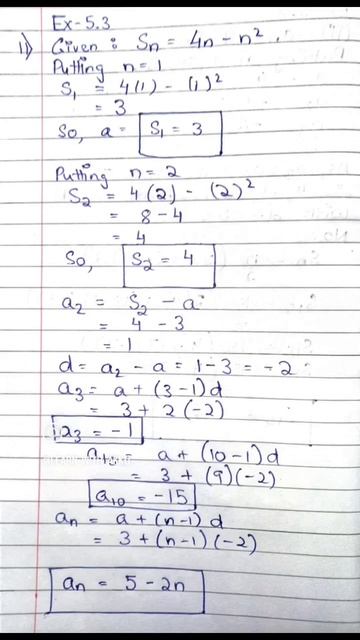 Ex-5.3
11) Given : Sn = 4n - n²
Putting n = 1
S₁ = 4(1) - (1)²
= 3
So, a = S₁ = 3
Putting n = 2
S₂ = 4(2) - (2)²
= 8 - 4
= 4
So, S₂ = 4
a₂ = S₂ - a
= 4 - 3
= 1
d = a₂ - a = 1 - 3 = -2
a₃ = a + (3-1)d
= 3 + 2(-2)
a₃ = -1
a₁₀ = a + (10-1)d
= 3 + (9)(-2)
a₁₀ = -15
an = a + (n-1)d
= 3 + (n-1)(-2)
an = 5 - 2n